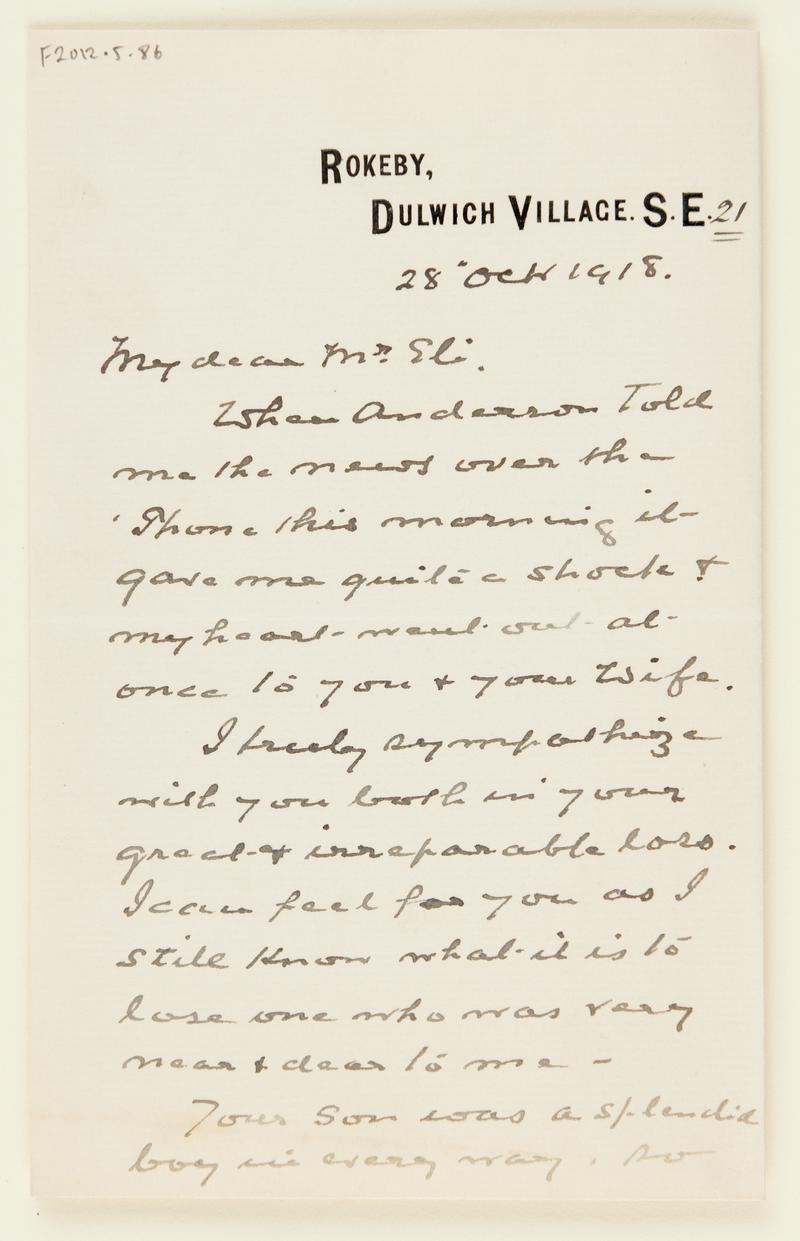 F2012.5.86
ROKEBY,
DULWICH VILLAGE. S.E.21
28 Oct 1918.
My dear Mr. Eli.
When Anderson Told
me the news over the
'Phone this morning it
gave me quite a shock &
my heart went out at
once to you & your Wife.
I truly sympathize
with you both in your
great & irreparable loss.
I can feel for you as I
still Know what it is to
lose one who was very
near & dear to me -
Your Son was a splendid
boy in every way, so